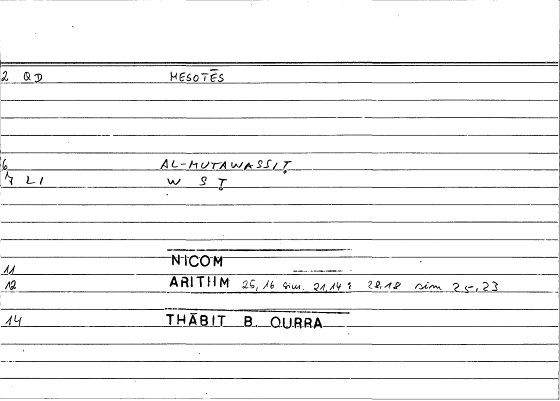 2 QD MESOTĒS
6 AL-MUTAWASSIṬ
7 LI W S Ṭ
11 NICOM
12 ARITHM 26,16 sim. 21,14; 28,18 sim 25,23
14 THĀBIT B. QURRA